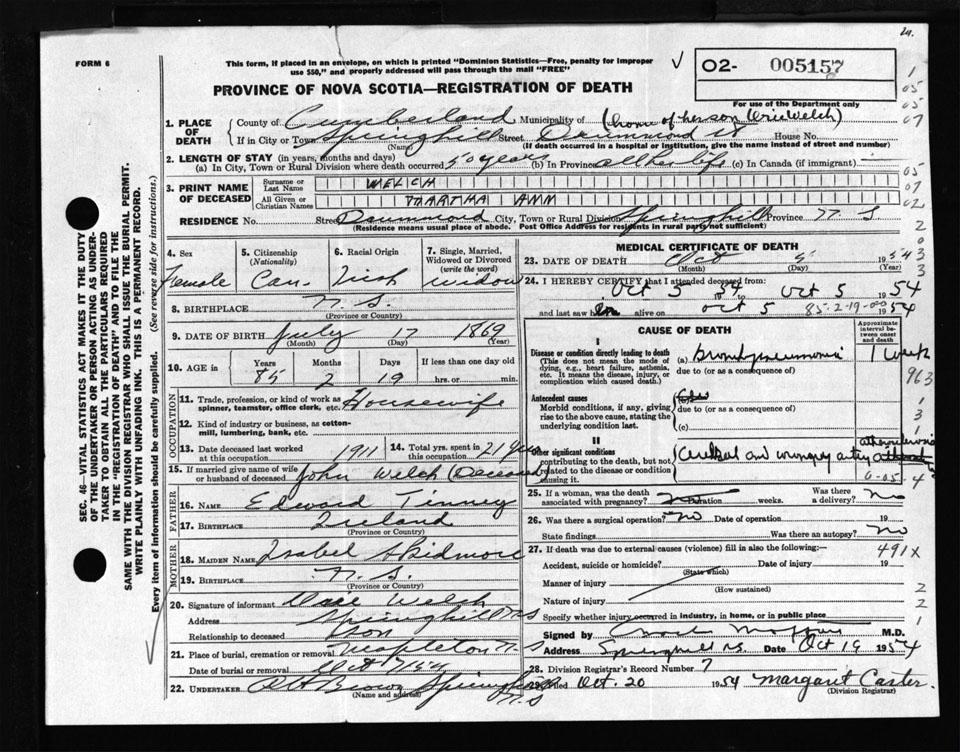 24.
FORM 6
This form, if placed in an envelope, on which is printed "Dominion Statistics—Free, penalty for improper
use $50," and properly addressed will pass through the mail "FREE"
O2- 005157
PROVINCE OF NOVA SCOTIA—REGISTRATION OF DEATH
For use of the Department only
1. PLACE OF DEATH
County of Cumberland Municipality of (home of her son Orie Welch)
If in City or Town Springhill Street Drummond St House No.
(Name) (If death occurred in a hospital or institution, give the name instead of street and number)
2. LENGTH OF STAY (in years, months and days)
(a) In City, Town or Rural Division where death occurred 50 years (b) In Province all her life (c) In Canada (if immigrant) —
3. PRINT NAME OF DECEASED
Surname or Last Name WELCH
All Given or Christian Names MARTHA ANN
RESIDENCE No. Street Drummond City, Town or Rural Division Springhill Province N S
(Residence means usual place of abode. Post Office Address for residents in rural parts not sufficient)
4. Sex Female
5. Citizenship (Nationality) Can-
6. Racial Origin Irish
7. Single, Married, Widowed or Divorced (write the word) widow
8. BIRTHPLACE N. S.
(Province or Country)
9. DATE OF BIRTH July 17 1869
(Month) (Day) (Year)
10. AGE in Years 85 Months 2 Days 19 If less than one day old hrs. or min.
OCCUPATION
11. Trade, profession, or kind of work as spinner, teamster, office clerk, etc. Housewife
12. Kind of industry or business, as cotton-mill, lumbering, bank, etc.
13. Date deceased last worked at this occupation 1911
14. Total yrs. spent in this occupation 21 yrs
15. If married give name of wife or husband of deceased John Welch (Deceased)
FATHER
16. NAME Edward Tinney
17. BIRTHPLACE Ireland
(Province or Country)
MOTHER
18. MAIDEN NAME Isabel Skidmore
19. BIRTHPLACE N. S.
(Province or Country)
20. Signature of informant Welch
Address Springhill N S
Relationship to deceased Son
21. Place of burial, cremation or removal Mapleton N S
Date of burial or removal Oct 7/54
22. UNDERTAKER Brown Springhill N. S
(Name and address)
MEDICAL CERTIFICATE OF DEATH
23. DATE OF DEATH Oct 5 1954
(Month) (Day) (Year)
24. I HEREBY CERTIFY that I attended deceased from:
Oct 5 1954 to Oct 5 1954
and last saw her alive on Oct 5 1954
85-2-19-00
CAUSE OF DEATH
Approximate interval between onset and death
I
Disease or condition directly leading to death
(This does not mean the mode of dying, e.g., heart failure, asthenia, etc. It means the disease, injury, or complication which caused death.)
(a) Bronchopneumonia 1 week
due to (or as a consequence of)
963
Antecedent causes
Morbid conditions, if any, giving rise to the above cause, stating the underlying condition last.
(b)
due to (or as a consequence of)
(c)
II
Other significant conditions
contributing to the death, but not related to the disease or condition causing it.
Cerebral and coronary artery
0-05-4
25. If a woman, was the death associated with pregnancy? no Duration weeks. Was there a delivery? no
26. Was there a surgical operation? no Date of operation 19
State findings Was there an autopsy? no
27. If death was due to external causes (violence) fill in also the following:— 491X
Accident, suicide or homicide? Date of injury 19
(State which)
Manner of injury
(How sustained)
Nature of injury
Specify whether injury occurred in industry, in home, or in public place
Signed by M.D.
Address Springhill N.S. Date Oct 19 1954
28. Division Registrar's Record Number 7
Filed Oct. 20 1954 Margaret Carter.
(Division Registrar)
SEC. 46—VITAL STATISTICS ACT MAKES IT THE DUTY
OF THE UNDERTAKER OR PERSON ACTING AS UNDER-
TAKER TO OBTAIN ALL THE PARTICULARS REQUIRED
IN THE "REGISTRATION OF DEATH" AND TO FILE THE
SAME WITH THE DIVISION REGISTRAR WHO SHALL ISSUE THE BURIAL PERMIT.
WRITE PLAINLY WITH UNFADING INK. THIS IS A PERMANENT RECORD.
Every item of information should be carefully supplied. (See reverse side for instructions.)
1
05
05
07
05
07
02
2
0
3
3
1
3
1
2
2
1